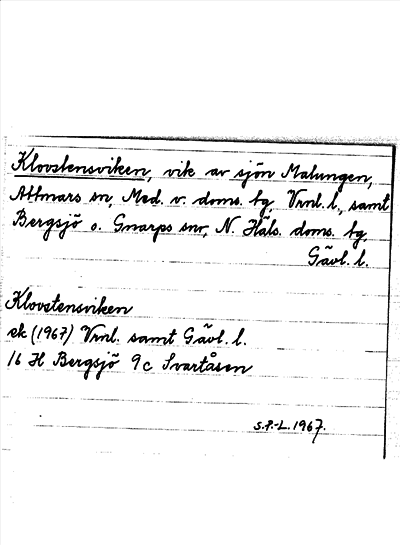 Klovstensviken, vik av sjön Malungen,
Attmars sn, Med. v. doms. tg, Vrnl. l., samt
Bergsjö o. Gnarps snr, N. Häls. doms. tg,
Gävl. l.
Klovstensviken
ek (1967) Vrnl. samt Gävl. l.
16 H Bergsjö 9c Svartåsen
S.P.-L. 1967.